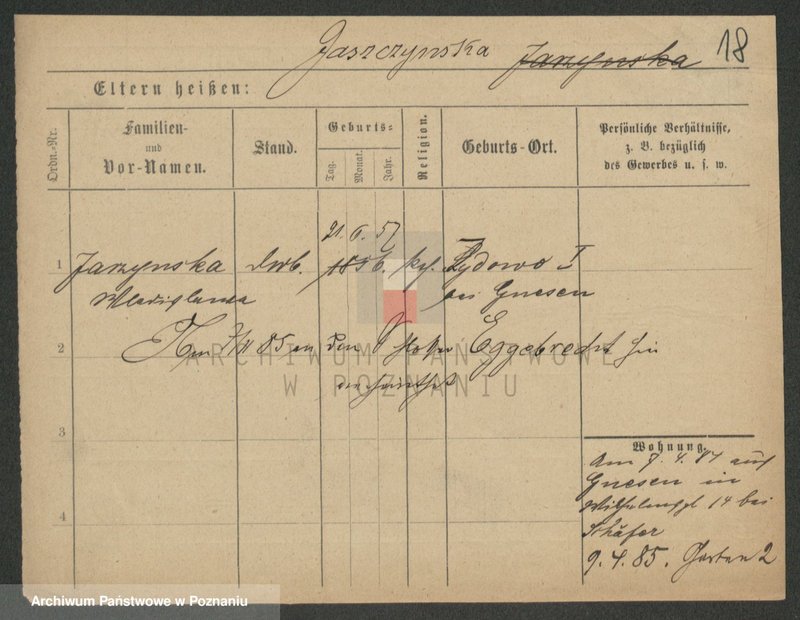 Jaszczynska Jarzynska 18
Eltern heißen:
Ordn.-Nr.
Familien- und Vor-Namen.
Stand.
Geburts-
Tag.
Monat.
Jahr.
Religion.
Geburts-Ort.
Persönliche Verhältnisse, z. B. bezüglich des Gewerbes u. s. w.
21. 6. 57
1 Jarzynska 1856. Żydowo I
bei Gnesen
2 Am 85 an den Eggebrecht hier
verheirathet
ARCHIWUM PAŃSTWOWE
W POZNANIU
3
Wohnung.
Am 7. 4. 84 aus
Gnesen in
14 bei
Schäfer
4
9. 4. 85. Garten 2
Archiwum Państwowe w Poznaniu